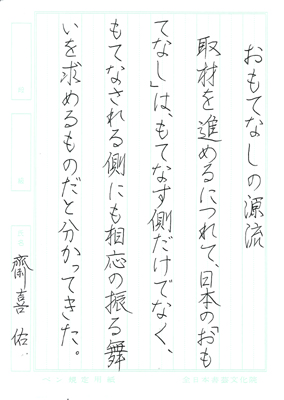 おもてなしの源流
取材を進めるにつれて、日本の「おも
てなし」は、もてなす側だけでなく、
もてなされる側にも相応の振る舞
いを求めるものだと分かってきた。
齋喜佑